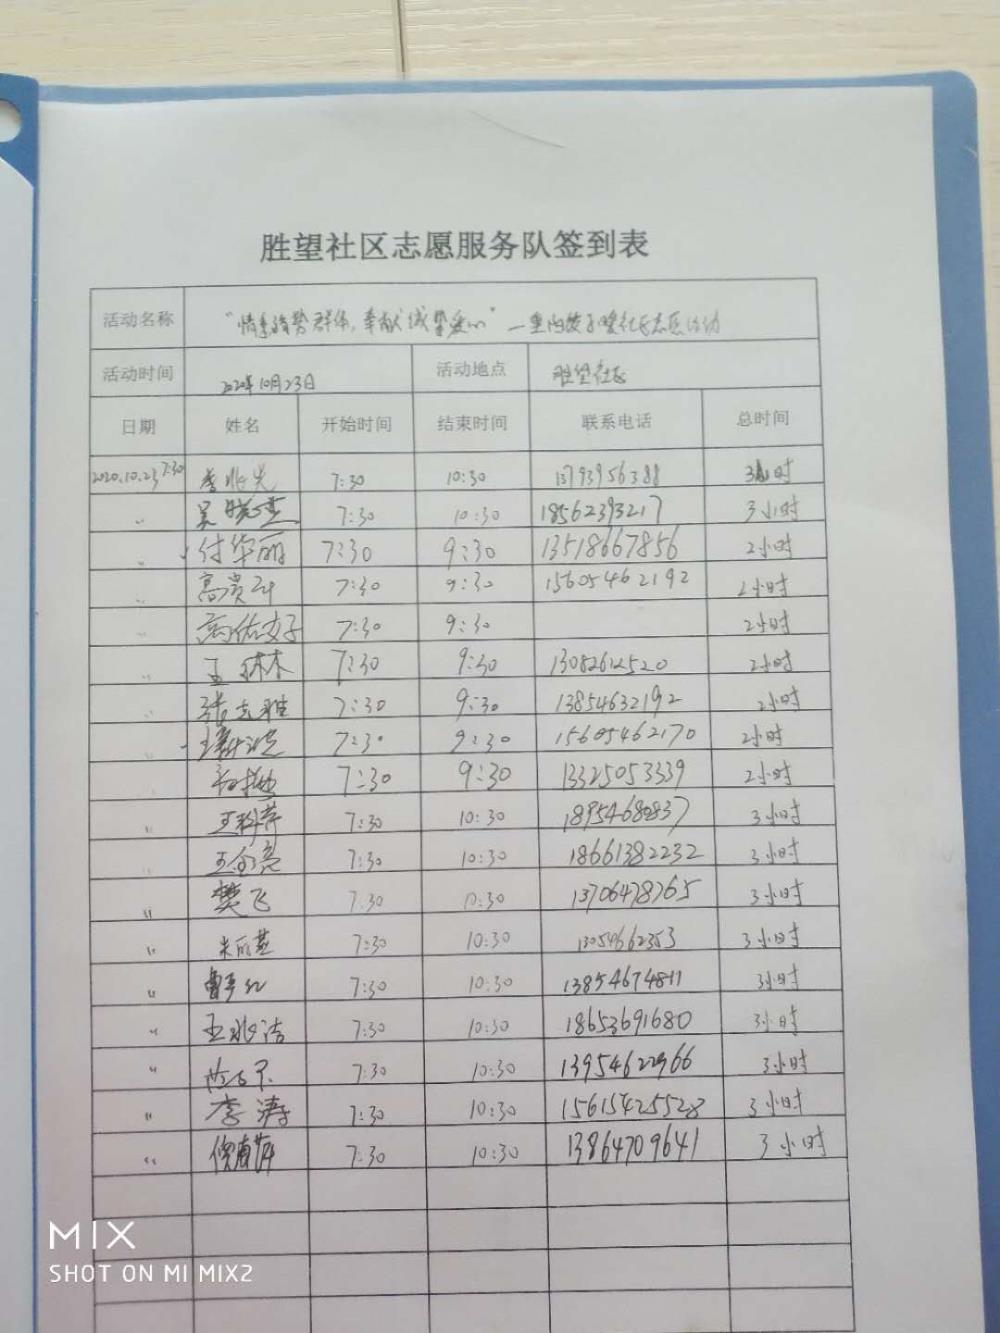 胜望社区志愿服务队签到表
活动名称
活动时间 2020年10月23日 活动地点 胜望社区
日期 姓名 开始时间 结束时间 联系电话 总时间
2020.10.23 7:30 李兆光 7:30 10:30 13793956388 3小时
〃 吴晓燕 7:30 10:30 18562393217 3小时
〃 付华丽 7:30 9:30 13518667856 2小时
〃 高贵斗 7:30 9:30 15605462192 2小时
〃 高佑好 7:30 9:30 2小时
〃 王琳木 7:30 9:30 2小时
〃 张志雅 7:30 9:30 13854632192 2小时
〃 7:30 9:30 15605462170 2小时
〃 7:30 9:30 13325053339 2小时
〃 王科芹 7:30 10:30 3小时
〃 王金亮 7:30 10:30 18661382232 3小时
〃 樊飞 7:30 10:30 13706478765 3小时
〃 朱丽燕 7:30 10:30 13054662353 3小时
〃 曹 7:30 10:30 13854674811 3小时
〃 王兆洁 7:30 10:30 18653691680 3小时
〃 7:30 10:30 3小时
〃 李涛 7:30 10:30 15615425528 3小时
〃 7:30 10:30 13864709641 3小时
MIX
SHOT ON MI MIX2